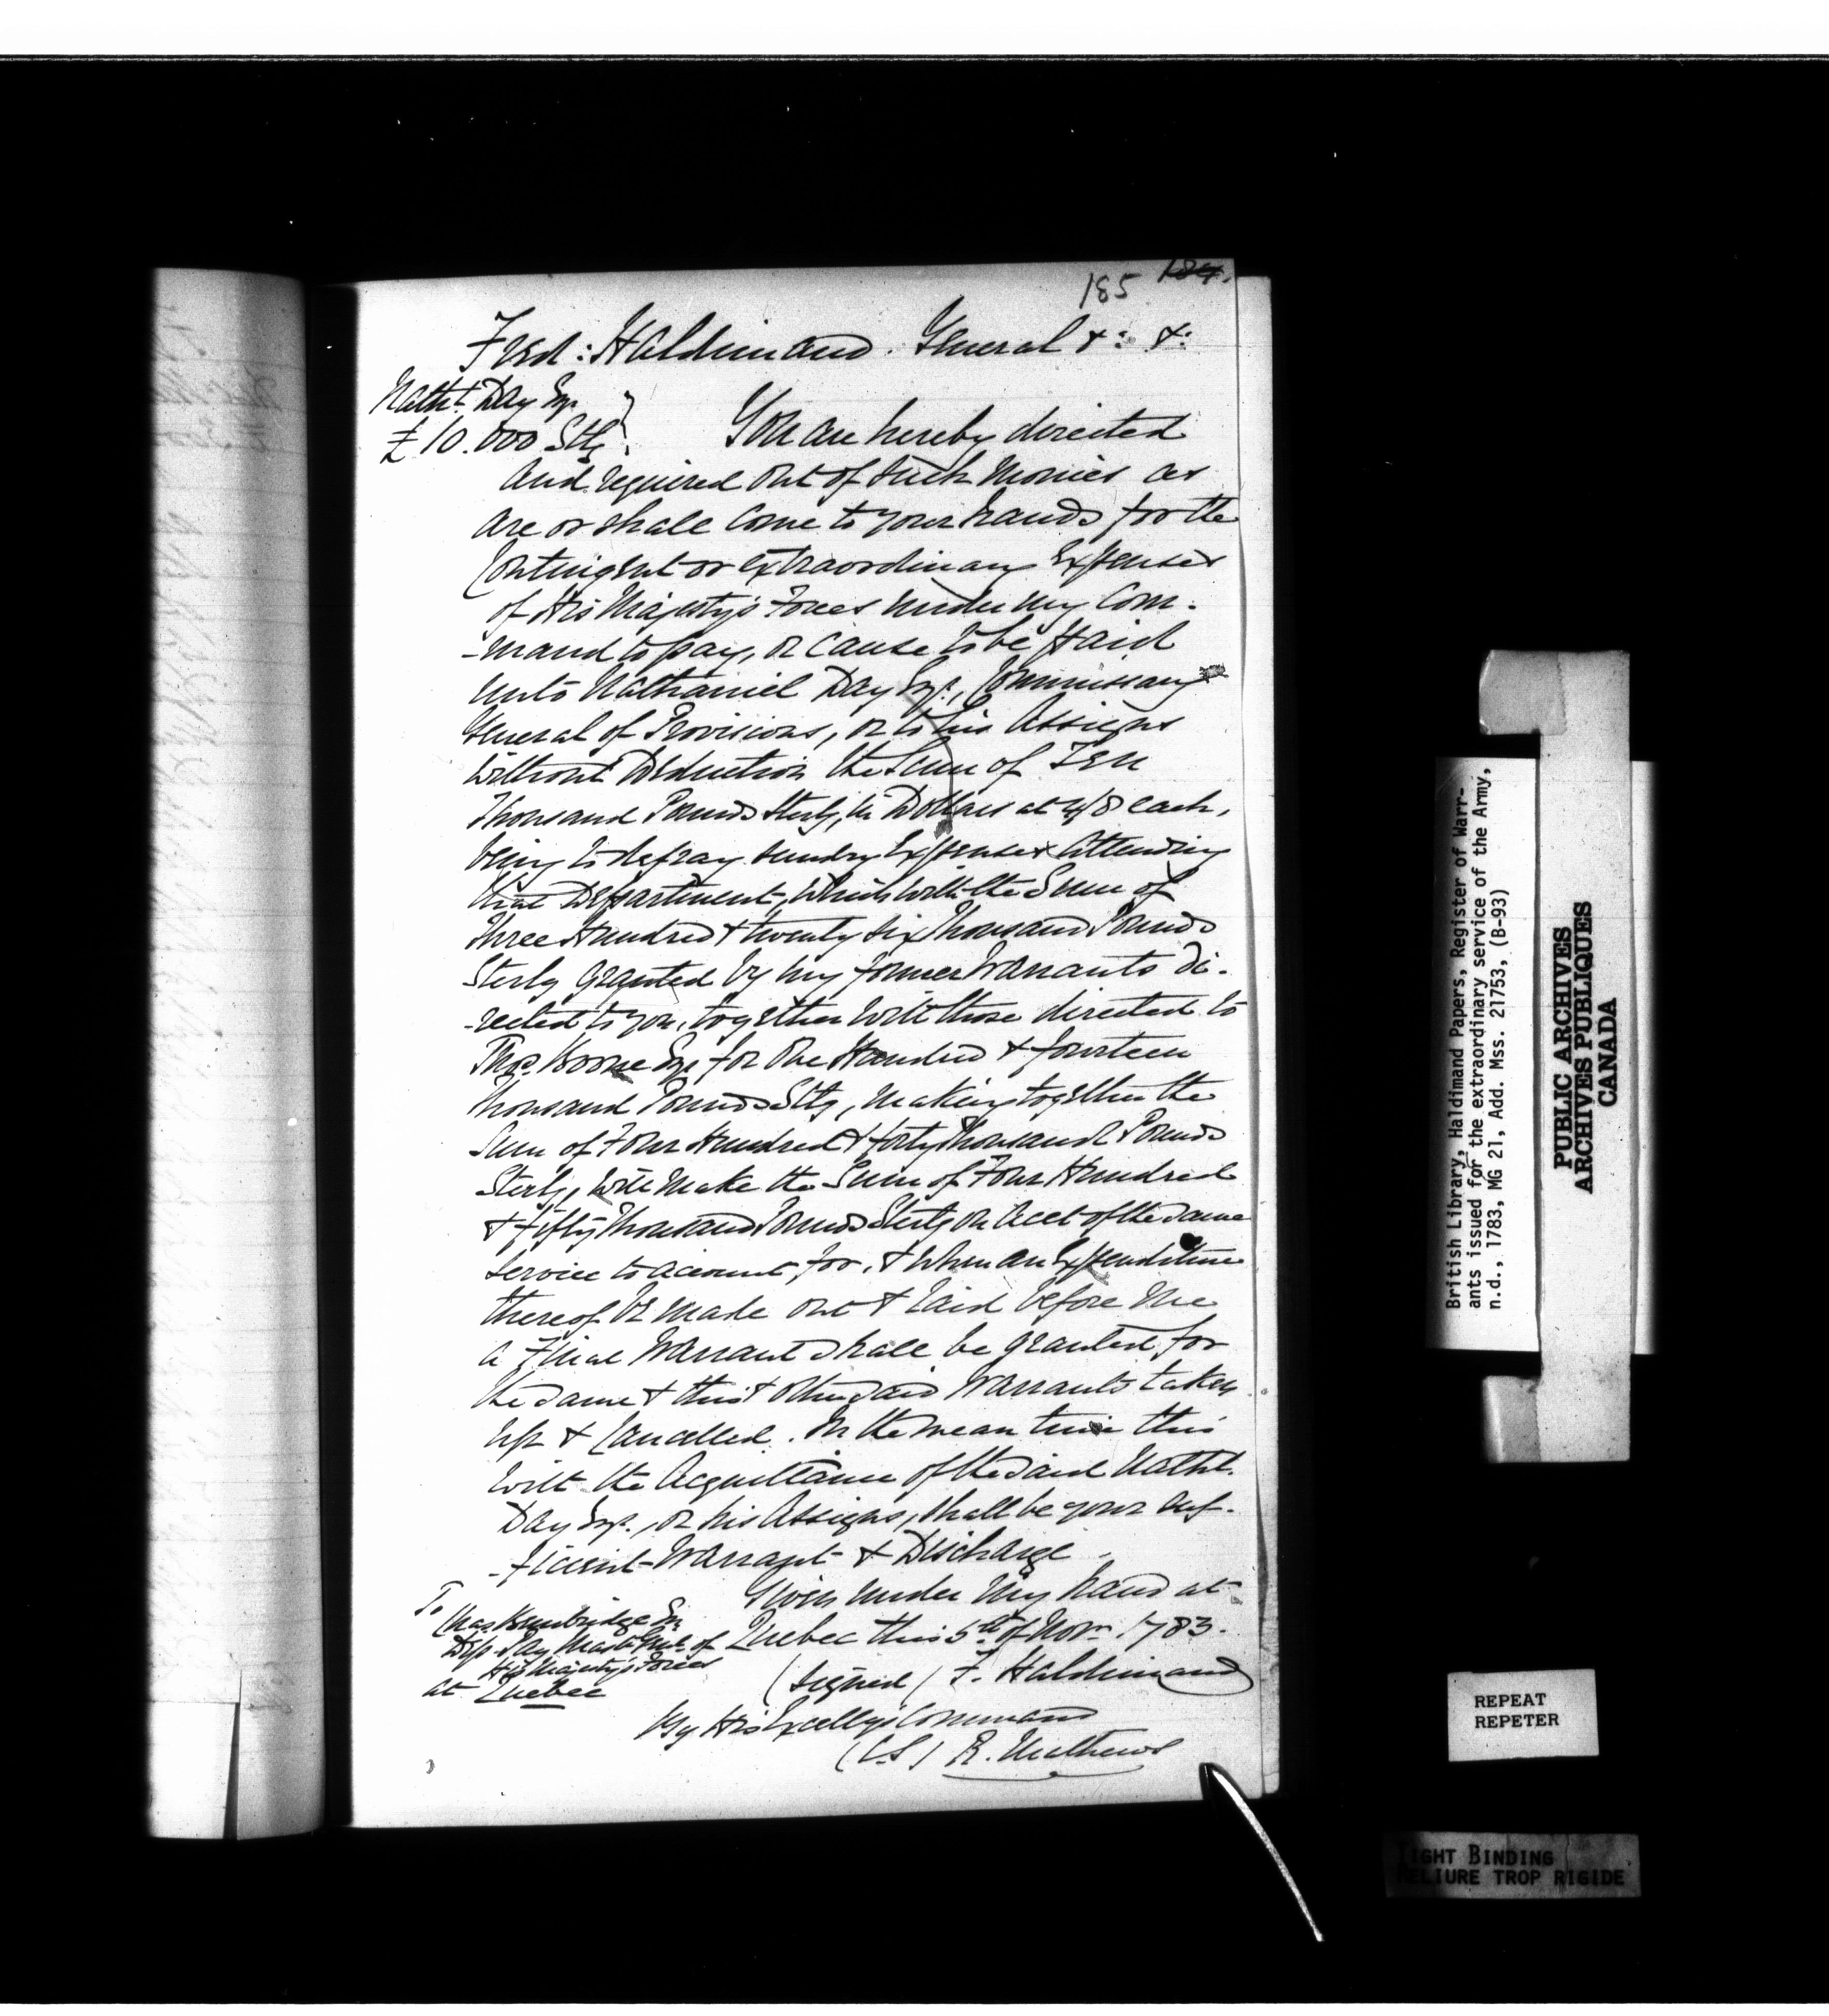 185 184.
Ferd: Haldimand. General &: &:
Nathl. Day Esqr.
£10.000 Stg.
You are hereby directed
and required out of such Monies as
are or shall come to your hands for the
Contingent or extraordinary Expenses
of His Majesty's Forces under my Com-
-mand to pay, or cause to be paid
unto Nathaniel Day Esqr., Commissary
General of Provisions, or to his Assigns
without Deduction the Sum of Ten
Thousand Pounds Sterlg, in Dollars at 4/8 each,
being to defray sundry Expenses attending
that Department, which with the Sum of
Three Hundred & twenty six Thousand Pounds
Sterlg granted by my former Warrants di-
-rected to you, together with those directed to
Thos. Boone Esqr for One Hundred & fourteen
Thousand Pounds Stlg, making together the
Sum of Four Hundred & forty Thousand Pounds
Sterlg, will make the Sum of Four Hundred
& Fifty Thousand Pounds Sterlg on Acct of the same
Service to account for, & when an Expenditure
thereof be made out & laid before me
a Final Warrant shall be granted for
the same & this & other said Warrants taken
up & Cancelled. In the mean time this
with the Acquittance of the said Nathl.
Day Esqr., or his Assigns, shall be your suf-
-ficient Warrant & Discharge.
Given under my hand at
Quebec this 5th of Novr. 1783.
To
Dep. Pay Master Genl. of
His Majesty's Forces
at Quebec
(signed) F. Haldimand
By His Excelly's Command
(C.S) R. Mathews
British Library, Haldimand Papers, Register of Warr-
ants issued for the extraordinary service of the Army,
n.d., 1783, MG 21, Add. Mss. 21753, (B-93)
PUBLIC ARCHIVES
ARCHIVES PUBLIQUES
CANADA
REPEAT
REPETER
TIGHT BINDING
RELIURE TROP RIGIDE